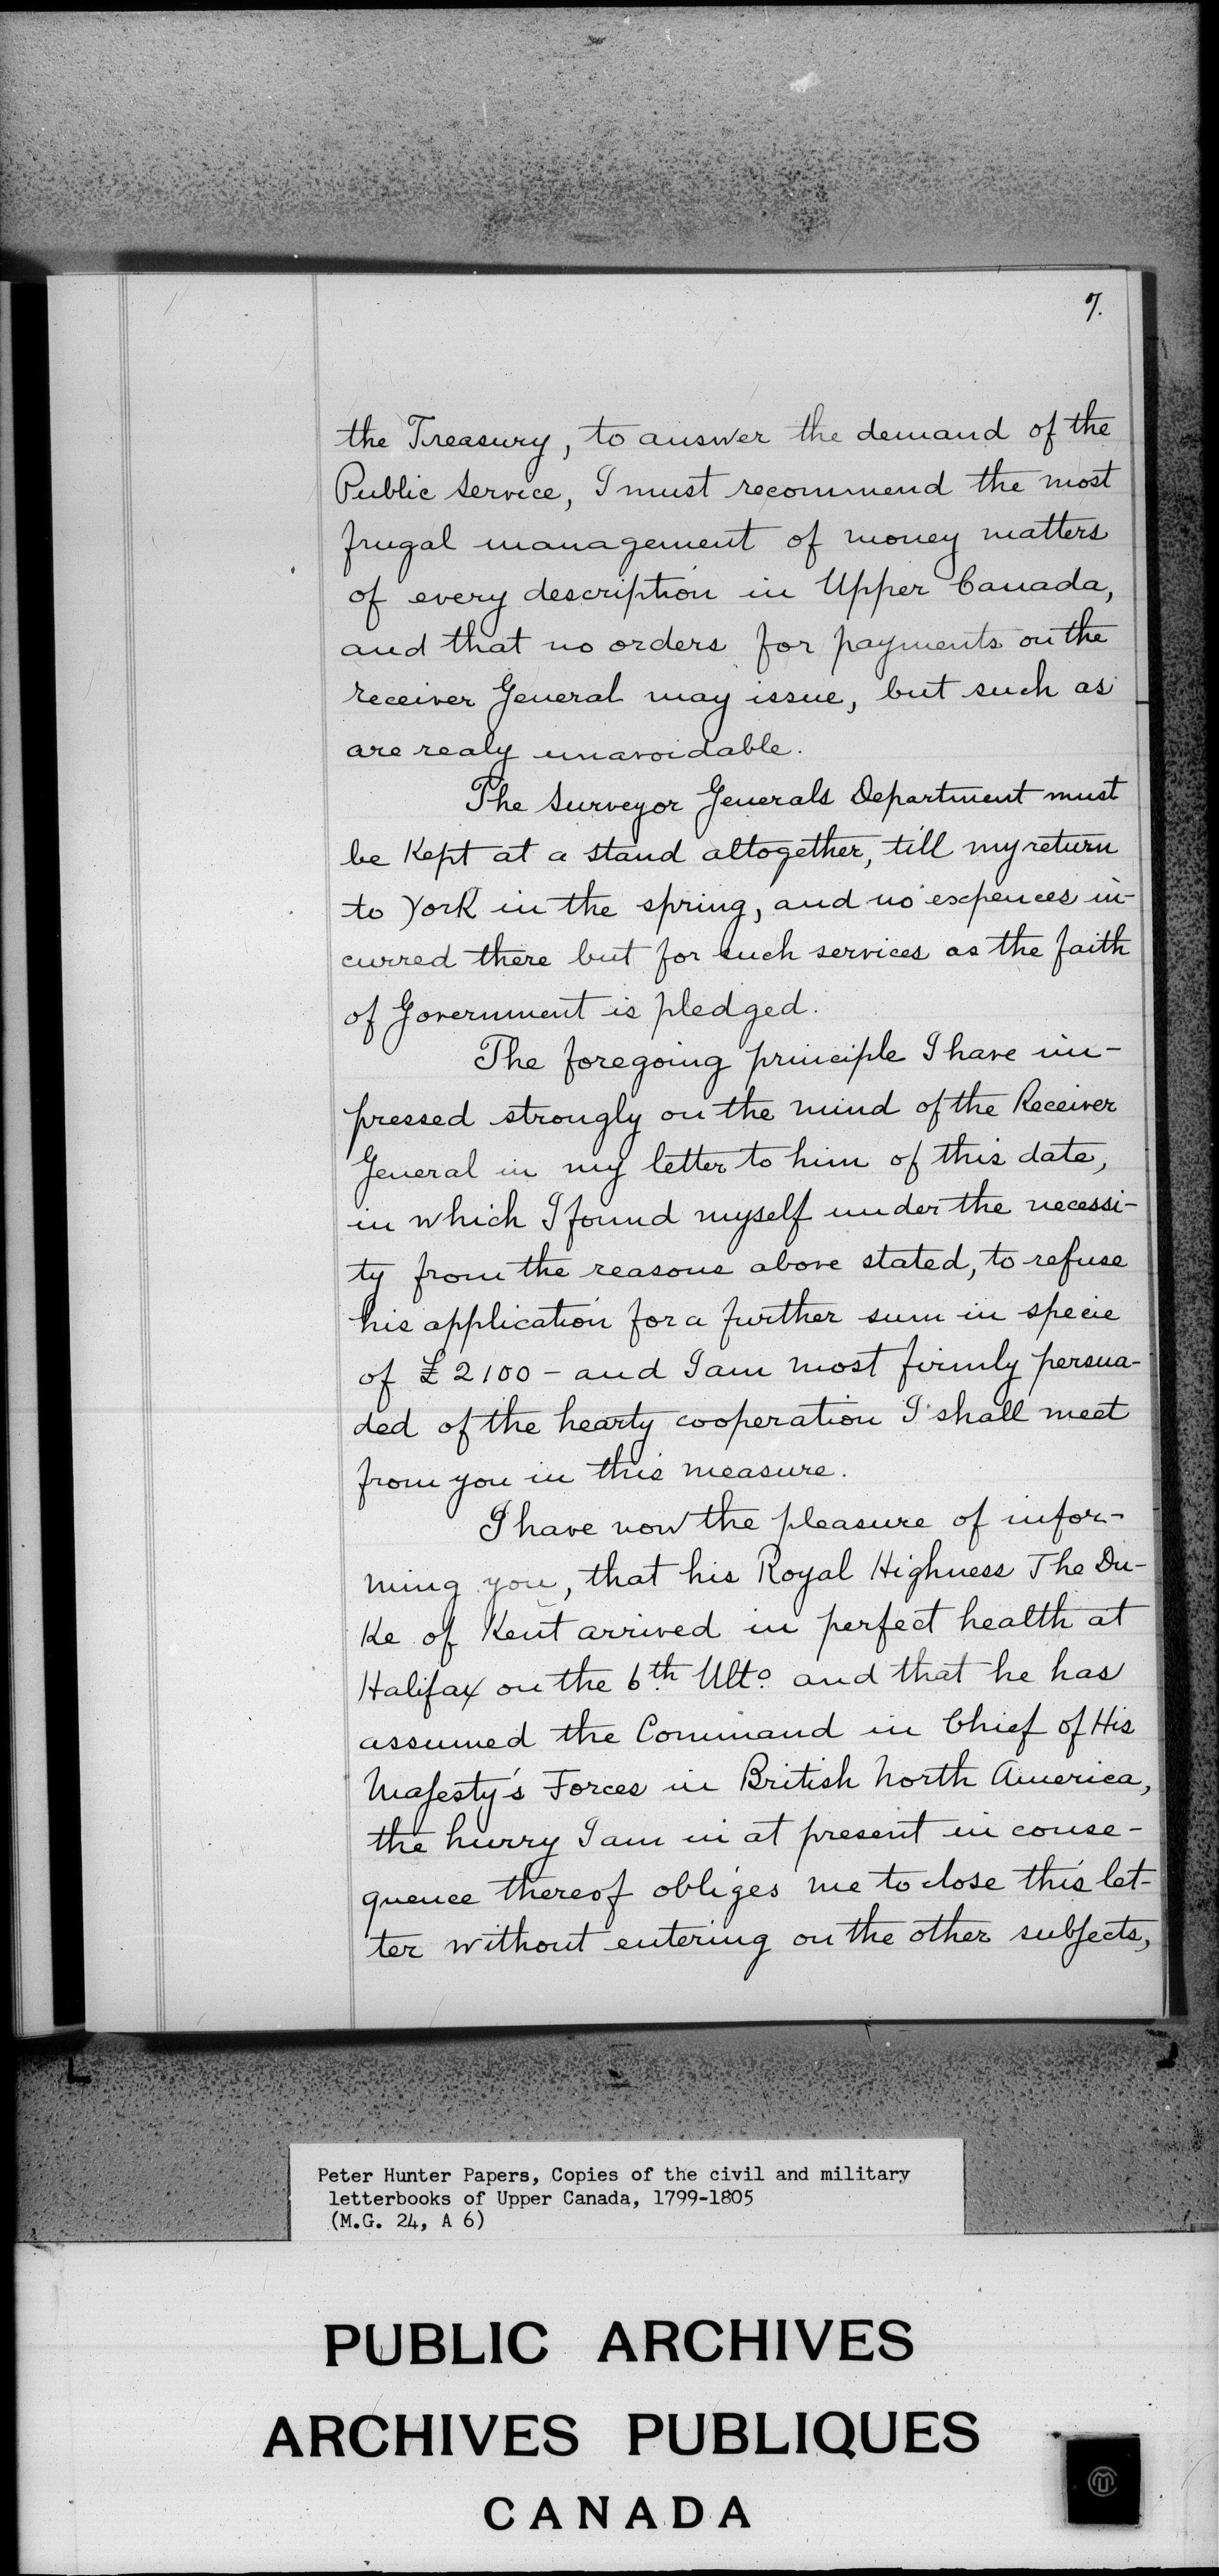 7.
the Treasury, to answer the demand of the
Public Service, I must recommend the most
frugal management of money matters
of every description in Upper Canada,
and that no orders for payments on the
receiver General may issue, but such as
are realy unavoidable.
The Surveyor Generals Department must
be Kept at a stand altogether, till my return
to York in the spring, and no expences in-
curred there but for such services as the faith
of Government is pledged.
The foregoing principle I have im-
pressed strongly on the mind of the Receiver
General in my letter to him of this date,
in which I found myself under the necessi-
ty from the reasons above stated, to refuse
his application for a further sum in specie
of £2100 - and I am most firmly persua-
ded of the hearty cooperation I shall meet
from you in this measure.
I have now the pleasure of infor-
ming you, that his Royal Highness The Du-
Ke of Kent arrived in perfect health at
Halifax on the 6th Ulto. and that he has
assumed the Command in Chief of His
Majesty's Forces in British North America,
the hurry I am in at present in conse-
quence thereof obliges me to close this let-
ter without entering on the other subjects,
Peter Hunter Papers, Copies of the civil and military
letterbooks of Upper Canada, 1799-1805
(M.G. 24, A 6)
PUBLIC ARCHIVES
ARCHIVES PUBLIQUES
CANADA